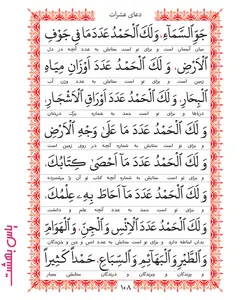 دعای عشرات
جَوِّ السَّمَآءِ، وَ لَكَ الْحَمْدُ عَدَدَ مَا فِی جَوْفِ
میان آسمان است و برای تو است ستایش به عدد آنچه در دل
الْاَرْضِ، وَ لَكَ الْحَمْدُ عَدَدَ اَوْزَانِ مِیَاهِ
زمین است و برای تو است ستایش به عدد وزن آب
الْبِحَارِ، وَ لَكَ الْحَمْدُ عَدَدَ اَوْرَاقِ الْاَشْجَارِ،
دریاها و برای تو است حمد به شماره برگ درختان
وَ لَكَ الْحَمْدُ عَدَدَ مَا عَلَی وَجْهِ الْاَرْضِ
و برای تو است ستایش به عدد آنچه در روی زمین است
وَ لَكَ الْحَمْدُ عَدَدَ مَآ اَحْصَی كِتَابُكَ،
و برای تو است ستایش به شماره آنچه کتاب تو آن را برشمرده
وَ لَكَ الْحَمْدُ عَدَدَ مَآ اَحَاطَ بِهِ عِلْمُكَ،
و برای تو است حمد به عدد آنچه علم و دانشت
وَ لَكَ الْحَمْدُ عَدَدَ الْاِنْسِ وَ الْجِنِّ، وَ الْهَوَآمِّ
بدان احاطه دارد و برای تو است ستایش به عدد انس و جن و خزندگان
وَ الطَّیْرِ وَ الْبَهَآئِمِ وَ السِّبَاعِ، حَمْداً كَثِیراً
و پرندگان و چرندگان و درندگان ستایشی بسیار
۱۰۸